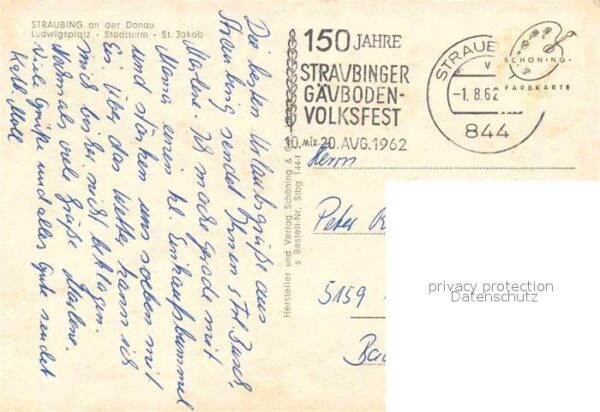 STRAUBING an der Donau
Ludwigsplatz - Stadtturm - St. Jakob
Die besten Urlaubsgrüße aus
Straubing sendet Ihnen
Marlene. Ich mache gerade mit
Mama einen kl. Einkaufsbummel
und stärken uns soeben mit
Eis. Über das Wetter kann ich
mich bisher nicht beklagen.
Nochmals viele Grüße Marlene.
Viele Grüße und alles Gute sendet
Hersteller und Verlag Schöning &
s Bestell-Nr. Stbg 144
150 JAHRE
STRAUBINGER
GÄUBODEN-
VOLKSFEST
10. MIT 20. AUG. 1962
STRAUB
v
-1.8.62
844
SCHÖNING-
FARBKARTE
Herrn
Peter
5159
privacy protection
Datenschutz